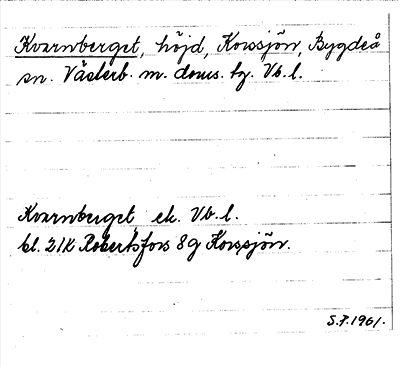 Kvarnberget, höjd, Korssjön, Bygdeå
sn. Västerb. m. doms. tg. Vb. l.
Kvarnberget, ek. Vb. l.
bl. 21K Robertsfors 8g Korssjön.
S.P. 1961.